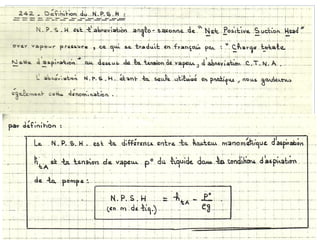 242. Définition du N.P.S.H :
N.P.S.H est l'abréviation anglo-saxonne de "Net Positive Suction Head"
over vapour pressure, ce qui se traduit en français par : "Charge totale
Nette d'aspiration" au dessus de la tension de vapeur, d'abréviation C.T.N.A.
L'abréviation N.P.S.H. étant la seule utilisée en pratique, nous garderons
également cette dénomination.
par définition :
Le N.P.S.H. est la différence entre la hauteur manométrique d'aspiration
h_tA et la tension de vapeur p° du liquide dans la condition d'aspiration
de la pompe :
N.P.S.H = h_tA - p°/ρg
(en m. de liq.)